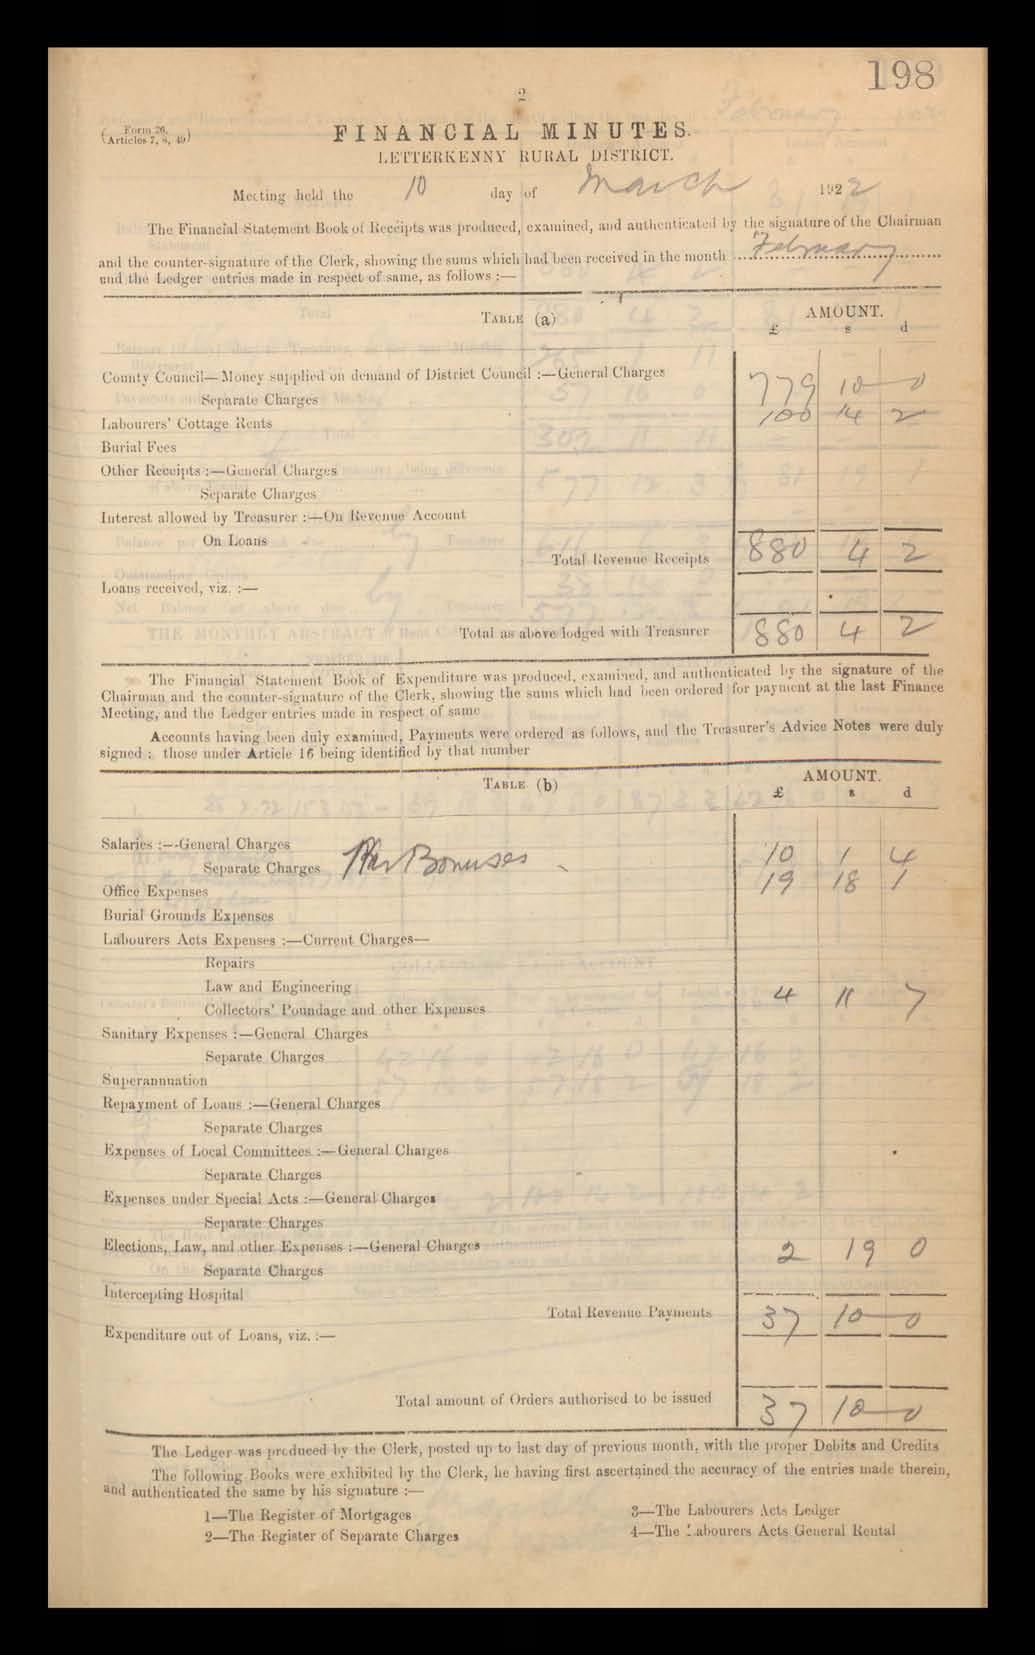 198
2
(Form 26. Articles 7, 8, 49)
FINANCIAL MINUTES.
LETTERKENNY RURAL DISTRICT.
Meeting held the 10 day of March 1922
The Financial Statement Book of Receipts was produced, examined, and authenticated by the signature of the Chairman
and the counter-signature of the Clerk, showing the sums which had been received in the month February
and the Ledger entries made in respect of same, as follows :—
TABLE (a) AMOUNT.
£ s d
County Council—Money supplied on demand of District Council :—General Charges 779 10 0
Separate Charges
Labourers' Cottage Rents 100 14 2
Burial Fees
Other Receipts :—General Charges
Separate Charges
Interest allowed by Treasurer :—On Revenue Account
On Loans
Total Revenue Receipts 880 4 2
Loans received, viz. :—
Total as above lodged with Treasurer 880 4 2
The Financial Statement Book of Expenditure was produced, examined, and authenticated by the signature of the
Chairman and the counter-signature of the Clerk, showing the sums which had been ordered for payment at the last Finance
Meeting, and the Ledger entries made in respect of same
Accounts having been duly examined, Payments were ordered as follows, and the Treasurer's Advice Notes were duly
signed ; those under Article 16 being identified by that number
TABLE (b) AMOUNT.
£ s d
Salaries :—General Charges 10 1 4
Separate Charges War Bonuses 19 18 1
Office Expenses
Burial Grounds Expenses
Labourers Acts Expenses :—Current Charges—
Repairs
Law and Engineering 4 11 7
Collectors' Poundage and other Expenses
Sanitary Expenses :—General Charges
Separate Charges
Superannuation
Repayment of Loans :—General Charges
Separate Charges
Expenses of Local Committees :—General Charges
Separate Charges
Expenses under Special Acts :—General Charges
Separate Charges
Elections, Law, and other Expenses :—General Charges 2 19 0
Separate Charges
Intercepting Hospital
Total Revenue Payments 37 10 0
Expenditure out of Loans, viz. :—
Total amount of Orders authorised to be issued 37 10 0
The Ledger was produced by the Clerk, posted up to last day of previous month, with the proper Debits and Credits
The following Books were exhibited by the Clerk, he having first ascertained the accuracy of the entries made therein,
and authenticated the same by his signature :—
1—The Register of Mortgages 3—The Labourers Acts Ledger
2—The Register of Separate Charges 4—The Labourers Acts General Rental